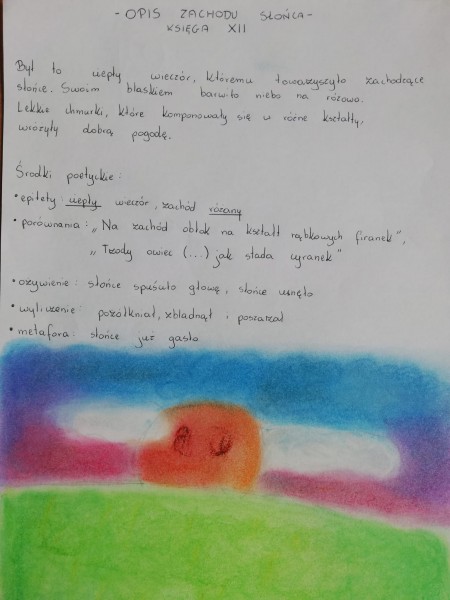 - OPIS ZACHODU SŁOŃCA -
KSIĘGA XII
Był to ciepły wieczór, któremu towarzyszyło zachodzące
słońce. Swoim blaskiem barwiło niebo na różowo.
Lekkie chmurki, które komponowały się w różne kształty,
wróżyły dobrą pogodę.
Środki poetyckie:
• epitety: ciepły wieczór, zachód różany
• porównania: „Na zachód obłok na kształt rąbkowych firanek",
„Trzody owiec (...) jak stada cyranek"
• ożywienie: słońce spuściło głowę, słońce usnęło
• wyliczenie: pożółkniał, zbladnął i poszarzał
• metafora: słońce już gasło